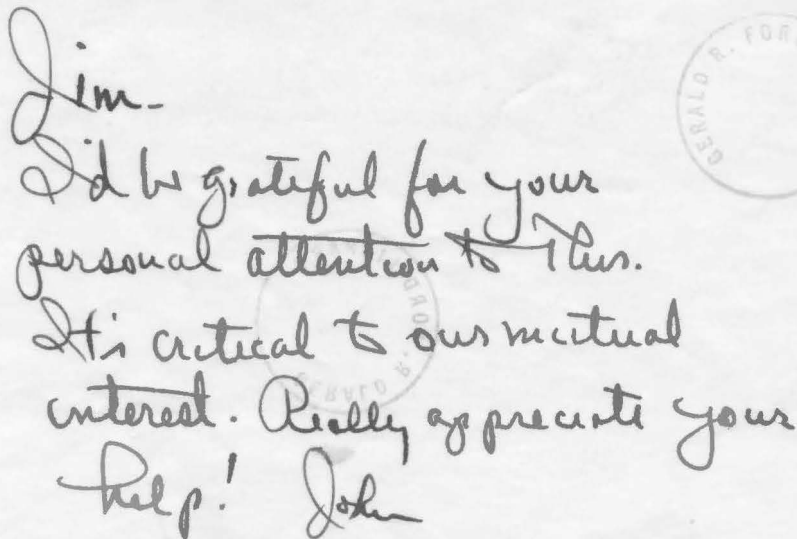 Jim-
I'd be grateful for your
personal attention to this.
It's critical to our mutual
interest. Really appreciate your
help! John
GERALD R. FOR